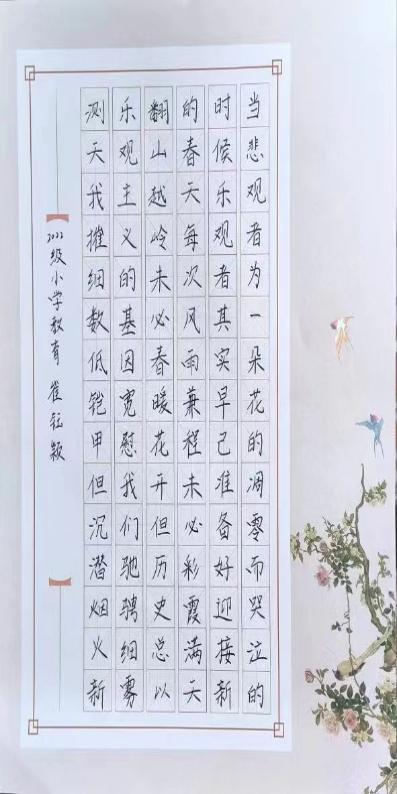 当悲观者为一朵花的凋零而哭泣的
时候乐观者其实早已准备好迎接新
的春天每次风雨兼程未必彩霞满天
翻山越岭未必春暖花开但历史总以
乐观主义的基因宽慰我们驰骋细雾
测天我摧细数低铠甲但沉潜烟火新
2022级小学教育 崔钰颖